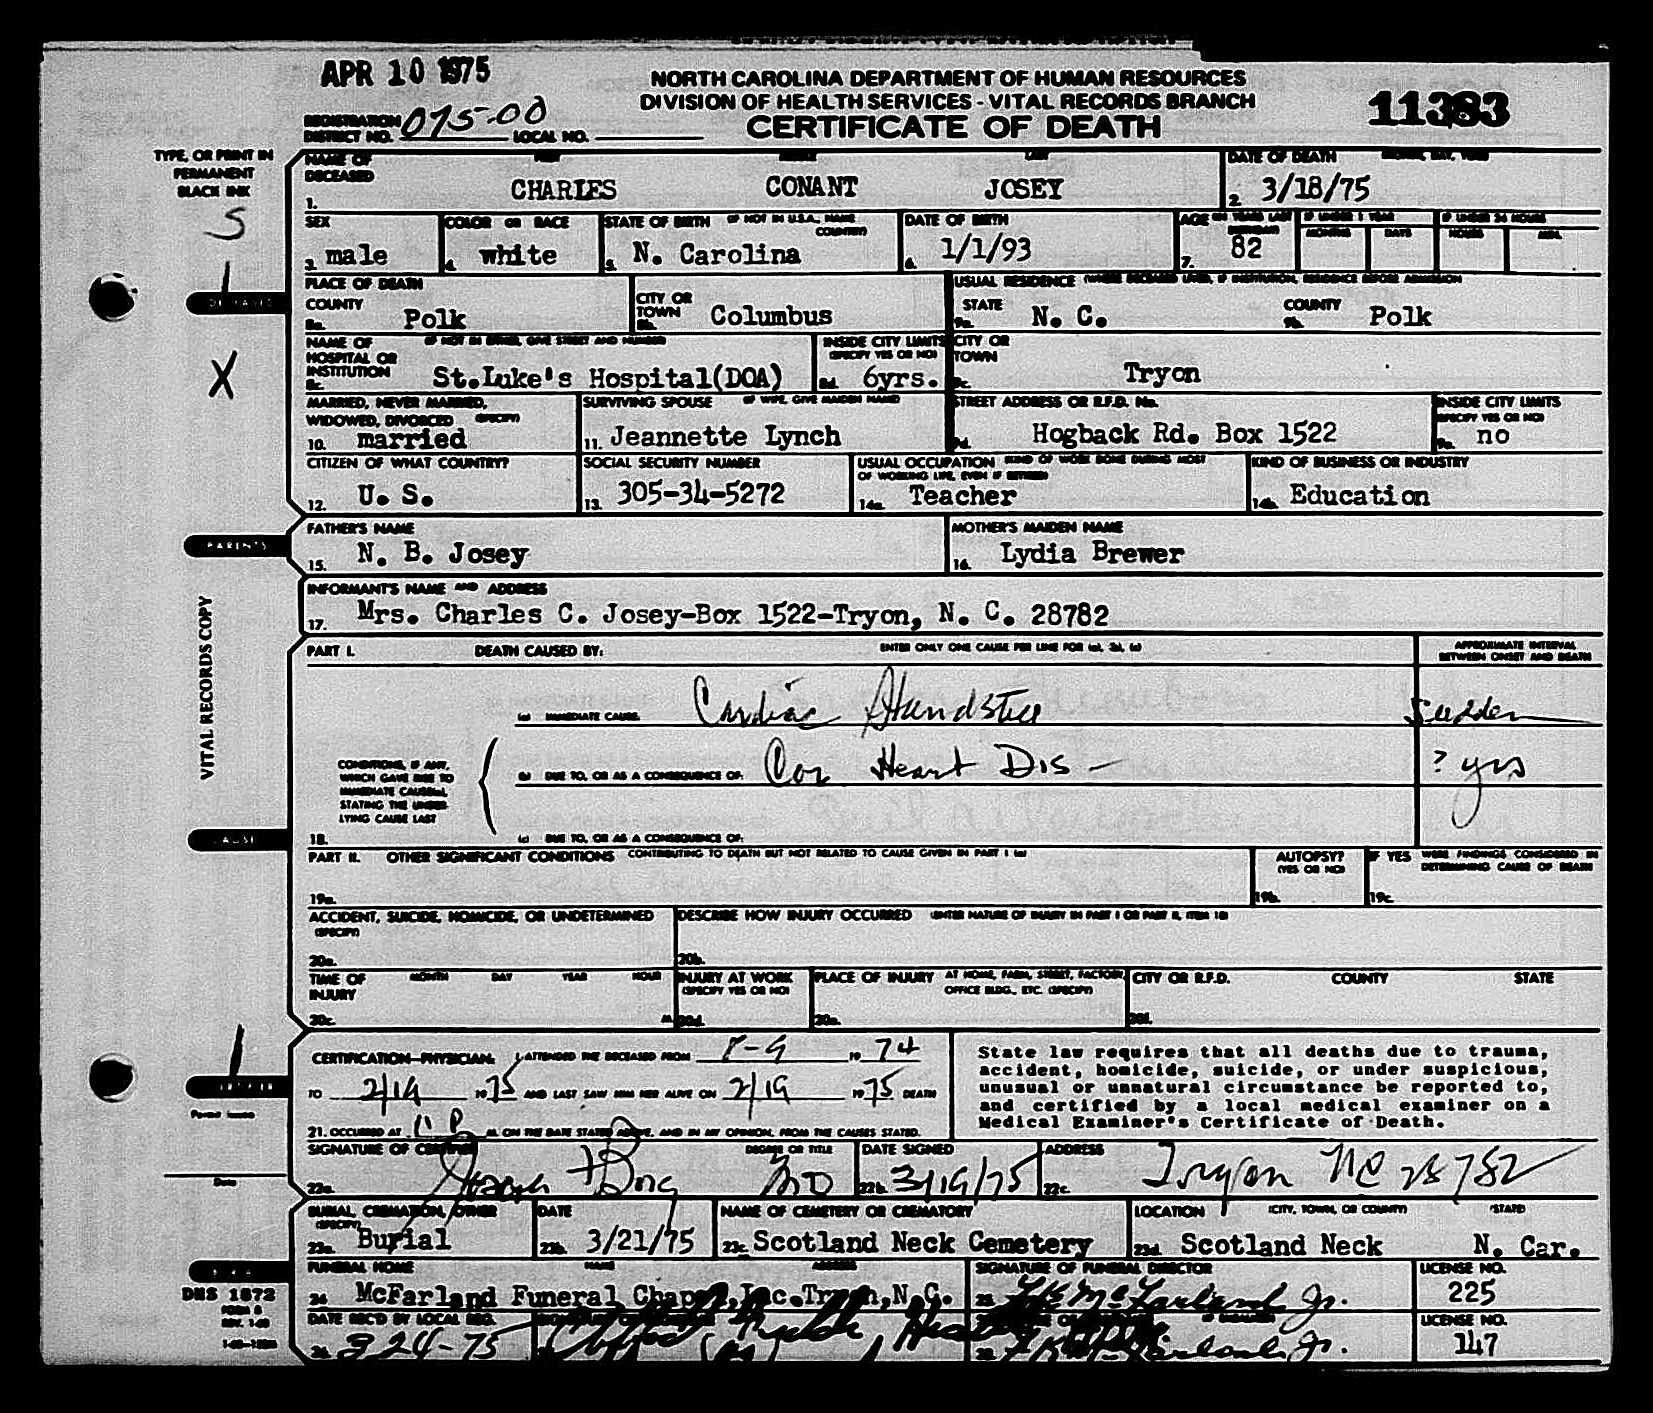 APR 10 1975
NORTH CAROLINA DEPARTMENT OF HUMAN RESOURCES
DIVISION OF HEALTH SERVICES - VITAL RECORDS BRANCH
CERTIFICATE OF DEATH
11383
REGISTRATION DISTRICT NO. 075-00 LOCAL NO.
TYPE, OR PRINT IN
PERMANENT
BLACK INK
S
NAME OF DECEASED FIRST MIDDLE LAST DATE OF DEATH MONTH, DAY, YEAR
1. CHARLES CONANT JOSEY 2. 3/18/75
SEX COLOR OR RACE STATE OF BIRTH (IF NOT IN U.S.A., NAME COUNTRY) DATE OF BIRTH AGE (IN YEARS LAST BIRTHDAY) IF UNDER 1 YEAR IF UNDER 24 HOURS
MONTHS DAYS HOURS MIN.
3. male 4. white 5. N. Carolina 6. 1/1/93 7. 82
PLACE OF DEATH USUAL RESIDENCE (WHERE DECEASED LIVED, IF INSTITUTION, RESIDENCE BEFORE ADMISSION)
COUNTY CITY OR TOWN STATE COUNTY
8a. Polk 8b. Columbus 9a. N. C. 9b. Polk
NAME OF HOSPITAL OR INSTITUTION (IF NOT IN EITHER, GIVE STREET AND NUMBER) INSIDE CITY LIMITS (SPECIFY YES OR NO) CITY OR TOWN
8c. St.Luke's Hospital(DOA) 8d. 6yrs. 9c. Tryon
X
MARRIED, NEVER MARRIED, WIDOWED, DIVORCED (SPECIFY) SURVIVING SPOUSE (IF WIFE, GIVE MAIDEN NAME) STREET ADDRESS OR R.F.D. No. INSIDE CITY LIMITS (SPECIFY YES OR NO)
10. married 11. Jeannette Lynch 9d. Hogback Rd. Box 1522 9e. no
CITIZEN OF WHAT COUNTRY? SOCIAL SECURITY NUMBER USUAL OCCUPATION (KIND OF WORK DONE DURING MOST OF WORKING LIFE, EVEN IF RETIRED) KIND OF BUSINESS OR INDUSTRY
12. U. S. 13. 305-34-5272 14a. Teacher 14b. Education
PARENTS
FATHER'S NAME MOTHER'S MAIDEN NAME
15. N. B. Josey 16. Lydia Brewer
INFORMANT'S NAME AND ADDRESS
17. Mrs. Charles C. Josey-Box 1522-Tryon, N. C. 28782
VITAL RECORDS COPY
PART I. DEATH CAUSED BY: ENTER ONLY ONE CAUSE PER LINE FOR (a), (b), (c) APPROXIMATE INTERVAL BETWEEN ONSET AND DEATH
(a) IMMEDIATE CAUSE. Cardiac Standstill Sudden
(b) DUE TO, OR AS A CONSEQUENCE OF: Cor Heart Dis - ? yrs
CONDITIONS, IF ANY,
WHICH GAVE RISE TO
IMMEDIATE CAUSE(a),
STATING THE UNDER-
LYING CAUSE LAST
CAUSE
18. (c) DUE TO, OR AS A CONSEQUENCE OF:
PART II. OTHER SIGNIFICANT CONDITIONS CONTRIBUTING TO DEATH BUT NOT RELATED TO CAUSE GIVEN IN PART I (a) AUTOPSY? (YES OR NO) IF YES WERE FINDINGS CONSIDERED IN DETERMINING CAUSE OF DEATH
19a. 19b. 19c.
ACCIDENT, SUICIDE, HOMICIDE, OR UNDETERMINED (SPECIFY) DESCRIBE HOW INJURY OCCURRED (ENTER NATURE OF INJURY IN PART I OR PART II, ITEM 18)
20a. 20b.
TIME OF INJURY MONTH DAY YEAR HOUR INJURY AT WORK (SPECIFY YES OR NO) PLACE OF INJURY AT HOME, FARM, STREET, FACTORY, OFFICE BLDG., ETC. (SPECIFY) CITY OR R.F.D. COUNTY STATE
20c. M. 20d. 20e. 20f.
CERTIFICATION-PHYSICIAN: I ATTENDED THE DECEASED FROM 8-9 19 74
TO 2/19 1975 AND LAST SAW HIM HER ALIVE ON 2/19 1975 DEATH
21. OCCURRED AT 11 P M. ON THE DATE STATED ABOVE, AND IN MY OPINION, FROM THE CAUSES STATED.
State law requires that all deaths due to trauma,
accident, homicide, suicide, or under suspicious,
unusual or unnatural circumstance be reported to,
and certified by a local medical examiner on a
Medical Examiner's Certificate of Death.
SIGNATURE OF CERTIFIER DEGREE OR TITLE DATE SIGNED ADDRESS
22a. MD 22b. 3/19/75 22c. Tryon NC 28782
Date
BURIAL, CREMATION, OTHER (SPECIFY) DATE NAME OF CEMETERY OR CREMATORY LOCATION (CITY, TOWN, OR COUNTY) (STATE)
23a. Burial 23b. 3/21/75 23c. Scotland Neck Cemetery 23d. Scotland Neck N. Car.
FUNERAL HOME NAME ADDRESS SIGNATURE OF FUNERAL DIRECTOR LICENSE NO.
24. McFarland Funeral Chapel,Inc.Tryon,N.C. 25. McFarland Jr. 225
DHS 1872
FORM 8
REV. 1-69
DATE REC'D BY LOCAL REG. LICENSE NO.
26. 3 24-75 28. McFarland Jr. 147